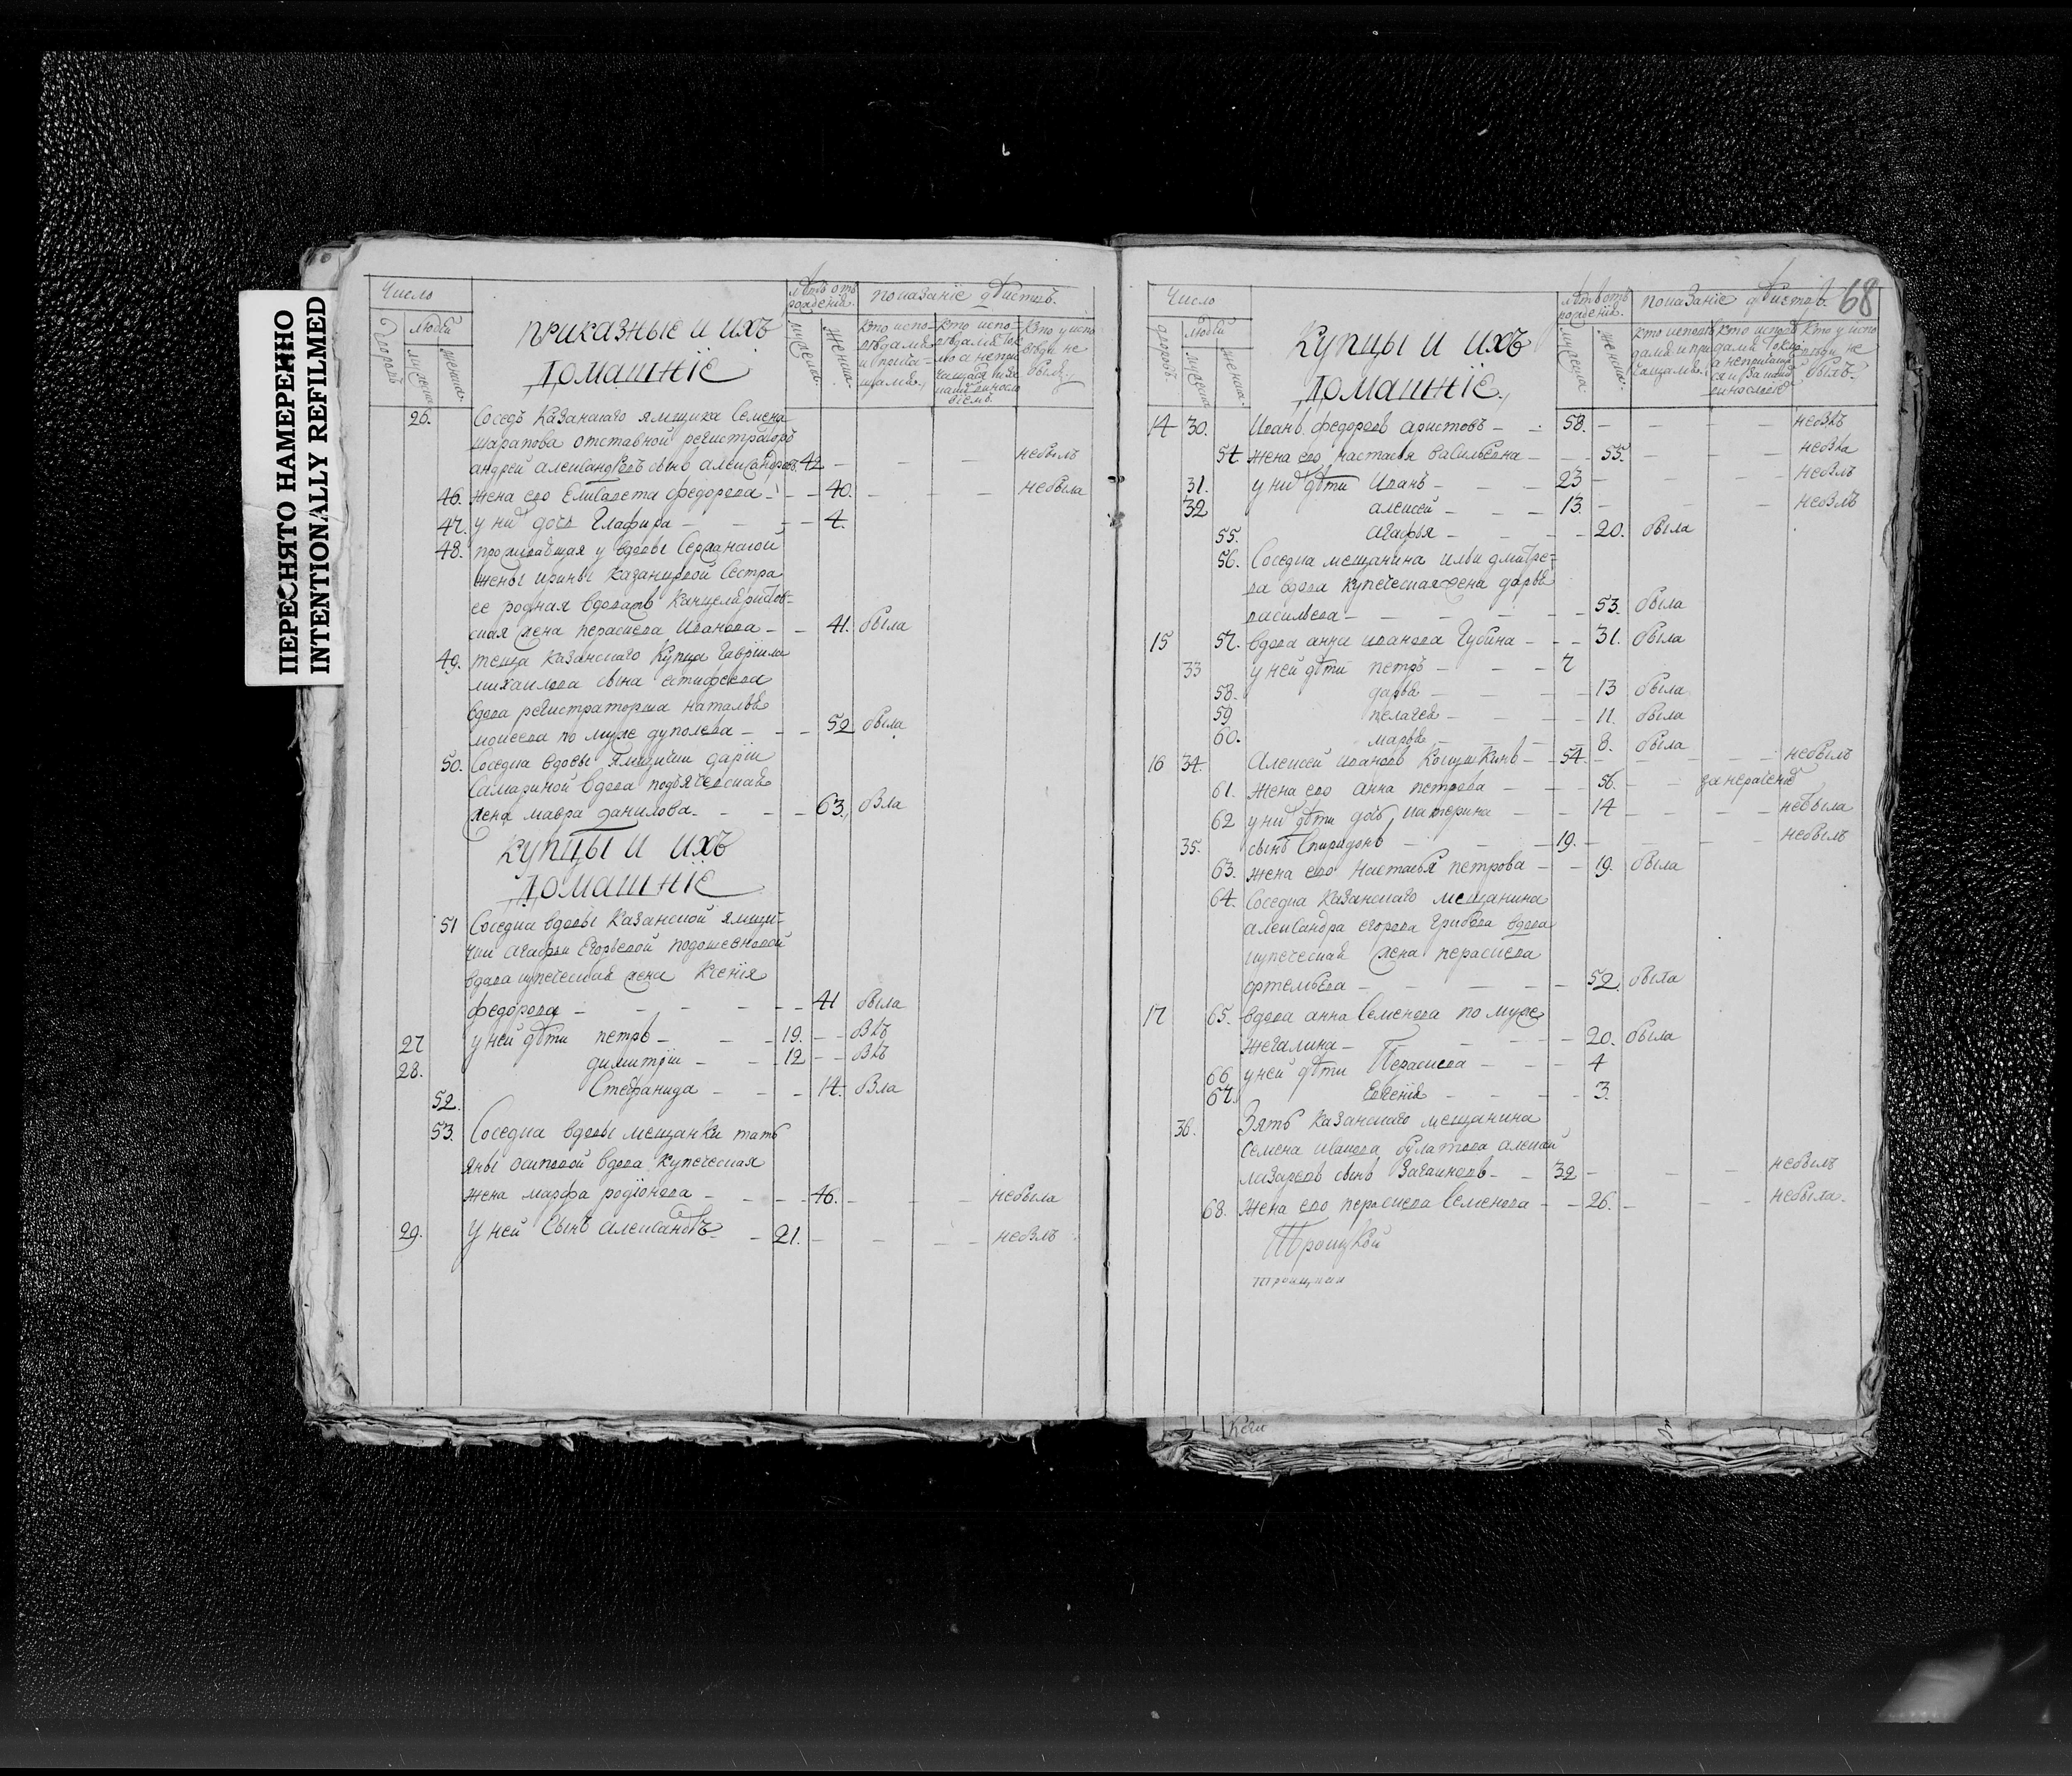 ПЕРЕСНЯТО НАМЕРЕННО
INTENTIONALLY REFILMED
Число
людей
дворовъ
мужеска
женска
приказные и ихъ
домашнiе
лѣтъ отъ
рожденiя
мужеска
женска
показанiе дѣйствъ.
26. Соседъ казанскаго ямщика Семена
шарапова отставной регистраторъ
андрей александровъ сынъ александровъ 42 – – – небылъ
46. жена его Елисавета федорова – – 40. – – – небыла
47. у них дочь Глафира – – – 4.
48. проживавшая у вдовы
жены ирины Казанцовой Сестра
ее родная вдова
ская жена параскева Иванова – – 41. была
49. теща казанскаго купца Гаврила
михаилова сына
вдова регистраторша наталья
моисеева по муже дуполева – – 52 была
50. Соседка вдовы ямщички дарьи
Самариной вдова подъяческая
жена мавра данилова – – – 63. была
Купцы и ихъ
домашнiе
51 Соседка вдовы казанской ямщи-
чки агафьи Егорьевой подошевновой
вдова купеческая жена Ксенiя
федорова – – – – – 41 была
27 у ней дѣти петръ – – 19. – – былъ
28. димитрiй – – 12 – – былъ
52. Стефанида – – – 14. была
53. Соседка вдовы мещанки тать
яны осиповой вдова купеческая
жена марфа родiонова – – – 46. – – – небыла
29. у ней сынъ александръ – – 21. – – – – небылъ
68
Число
людей
дворовъ
мужеска
женска
Купцы и ихъ
домашнiе.
лѣтъ отъ
рожденiя
мужеска
женска
показанiе дѣйствъ.
14 30. Иванъ федоровъ аристовъ – – 58. – – – – небылъ
54 жена его настасья васильева – – – 55. – – – небыла
31. у них дѣти Иванъ – – – 23 – – – – небылъ
32 алексей – – – 13. – – – – небылъ
55. агафья – – – – 20. была
56. Соседка мещанина ильи дмитре-
ва вдова купеческая жена дарья
васильева – – – – – 53. была
15 57. вдова анна иванова Губина – – – 31. была
33 у ней дѣти петръ – – – 7
58. дарья – – – – 13 была
59 пелагея – – – – 11. была
60. марья – – – – 8. была
16 34. Алексей ивановъ Кокушкинъ – – 54. – – – – небылъ
61. жена его анна петрова – – – 56. – – за нерачение
62 у них дѣти дочь катерина – – 14 – – – – небыла
35. сынъ Спиридонъ – – – 19. – – – – небылъ
63. жена его настасья петрова – – 19. была
64. Соседка казанскаго мещанина
александра егорова грибова вдова
купеческая жена параскева
артемьева – – – – – 52. была
17 65. вдова анна Семенова по муже
жегалина – – – – – 20. была
66 у ней дѣти Параскева – – – 4
67. Евгенiя – – – – 3.
36. Зять казанскаго мещанина
семена иванова булатова алексей
лазаревъ сынъ – – 32 – – – небылъ
68. жена его параскева семенова – – 26. – – – небыла.
Троицкой
троицкаи